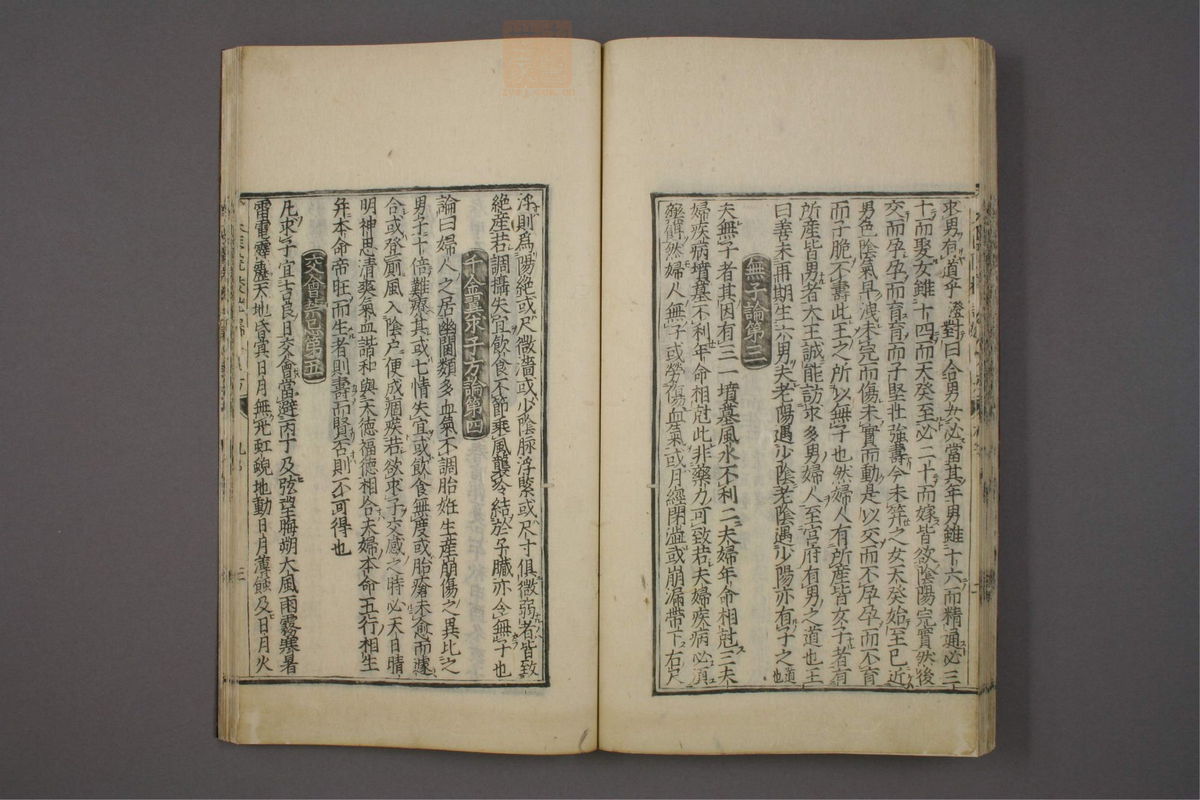 求男有道乎澄對曰合男女必當其年男雖十六而精通必三
十而娶女雖十四而天癸至必二十而嫁皆欲陰陽完實然後
交而孕孕而育育而子堅壯強壽今未笄之女天癸始至已近
男色陰氣早洩未完而傷未實而動是以交而不孕孕而不育
而子脆不壽此王之所以無子也然婦人有所產皆女子者有
所產皆男者大王誠能訪求多男婦人至宮府有男之道也王
曰善未再期生六男夫老陽遇少陰老陰遇少陽亦有子之道也
無子論第三
夫無子者其因有三一墳墓風水不利二夫婦年命相尅三夫
婦疾病墳墓不利年命相尅此非藥力可致若夫婦疾病必須
藥餌然婦人無子或勞傷血氣或月經閉澁或崩漏帶下右尺
浮則為陽絕或尺微濇或少陰脉浮緊或尺寸俱微弱者皆致
絕產若調攝失宜飲食不節乘風襲冷結於子臟亦令無子也
千金翼求子方論第四
論曰婦人之居幽閫類多血氣不調胎姙生產崩傷之異比之
男子十倍難療其或七情失宜或飲食無度或胎瘡未愈而遽
合或登厠風入陰户便成痼疾若欲求子交感之時必天日晴
明神思清爽氣血諧和與天德福德相合夫婦本命五行相生
并本命帝旺而生者則壽而賢否則不可得也
交會禁忌第五
凡求子宜吉良日交會當避丙丁及弦望晦朔大風雨霧寒暑
雷電霹靂天地昏冥日月無光虹蜺地動日月薄蝕及日月火